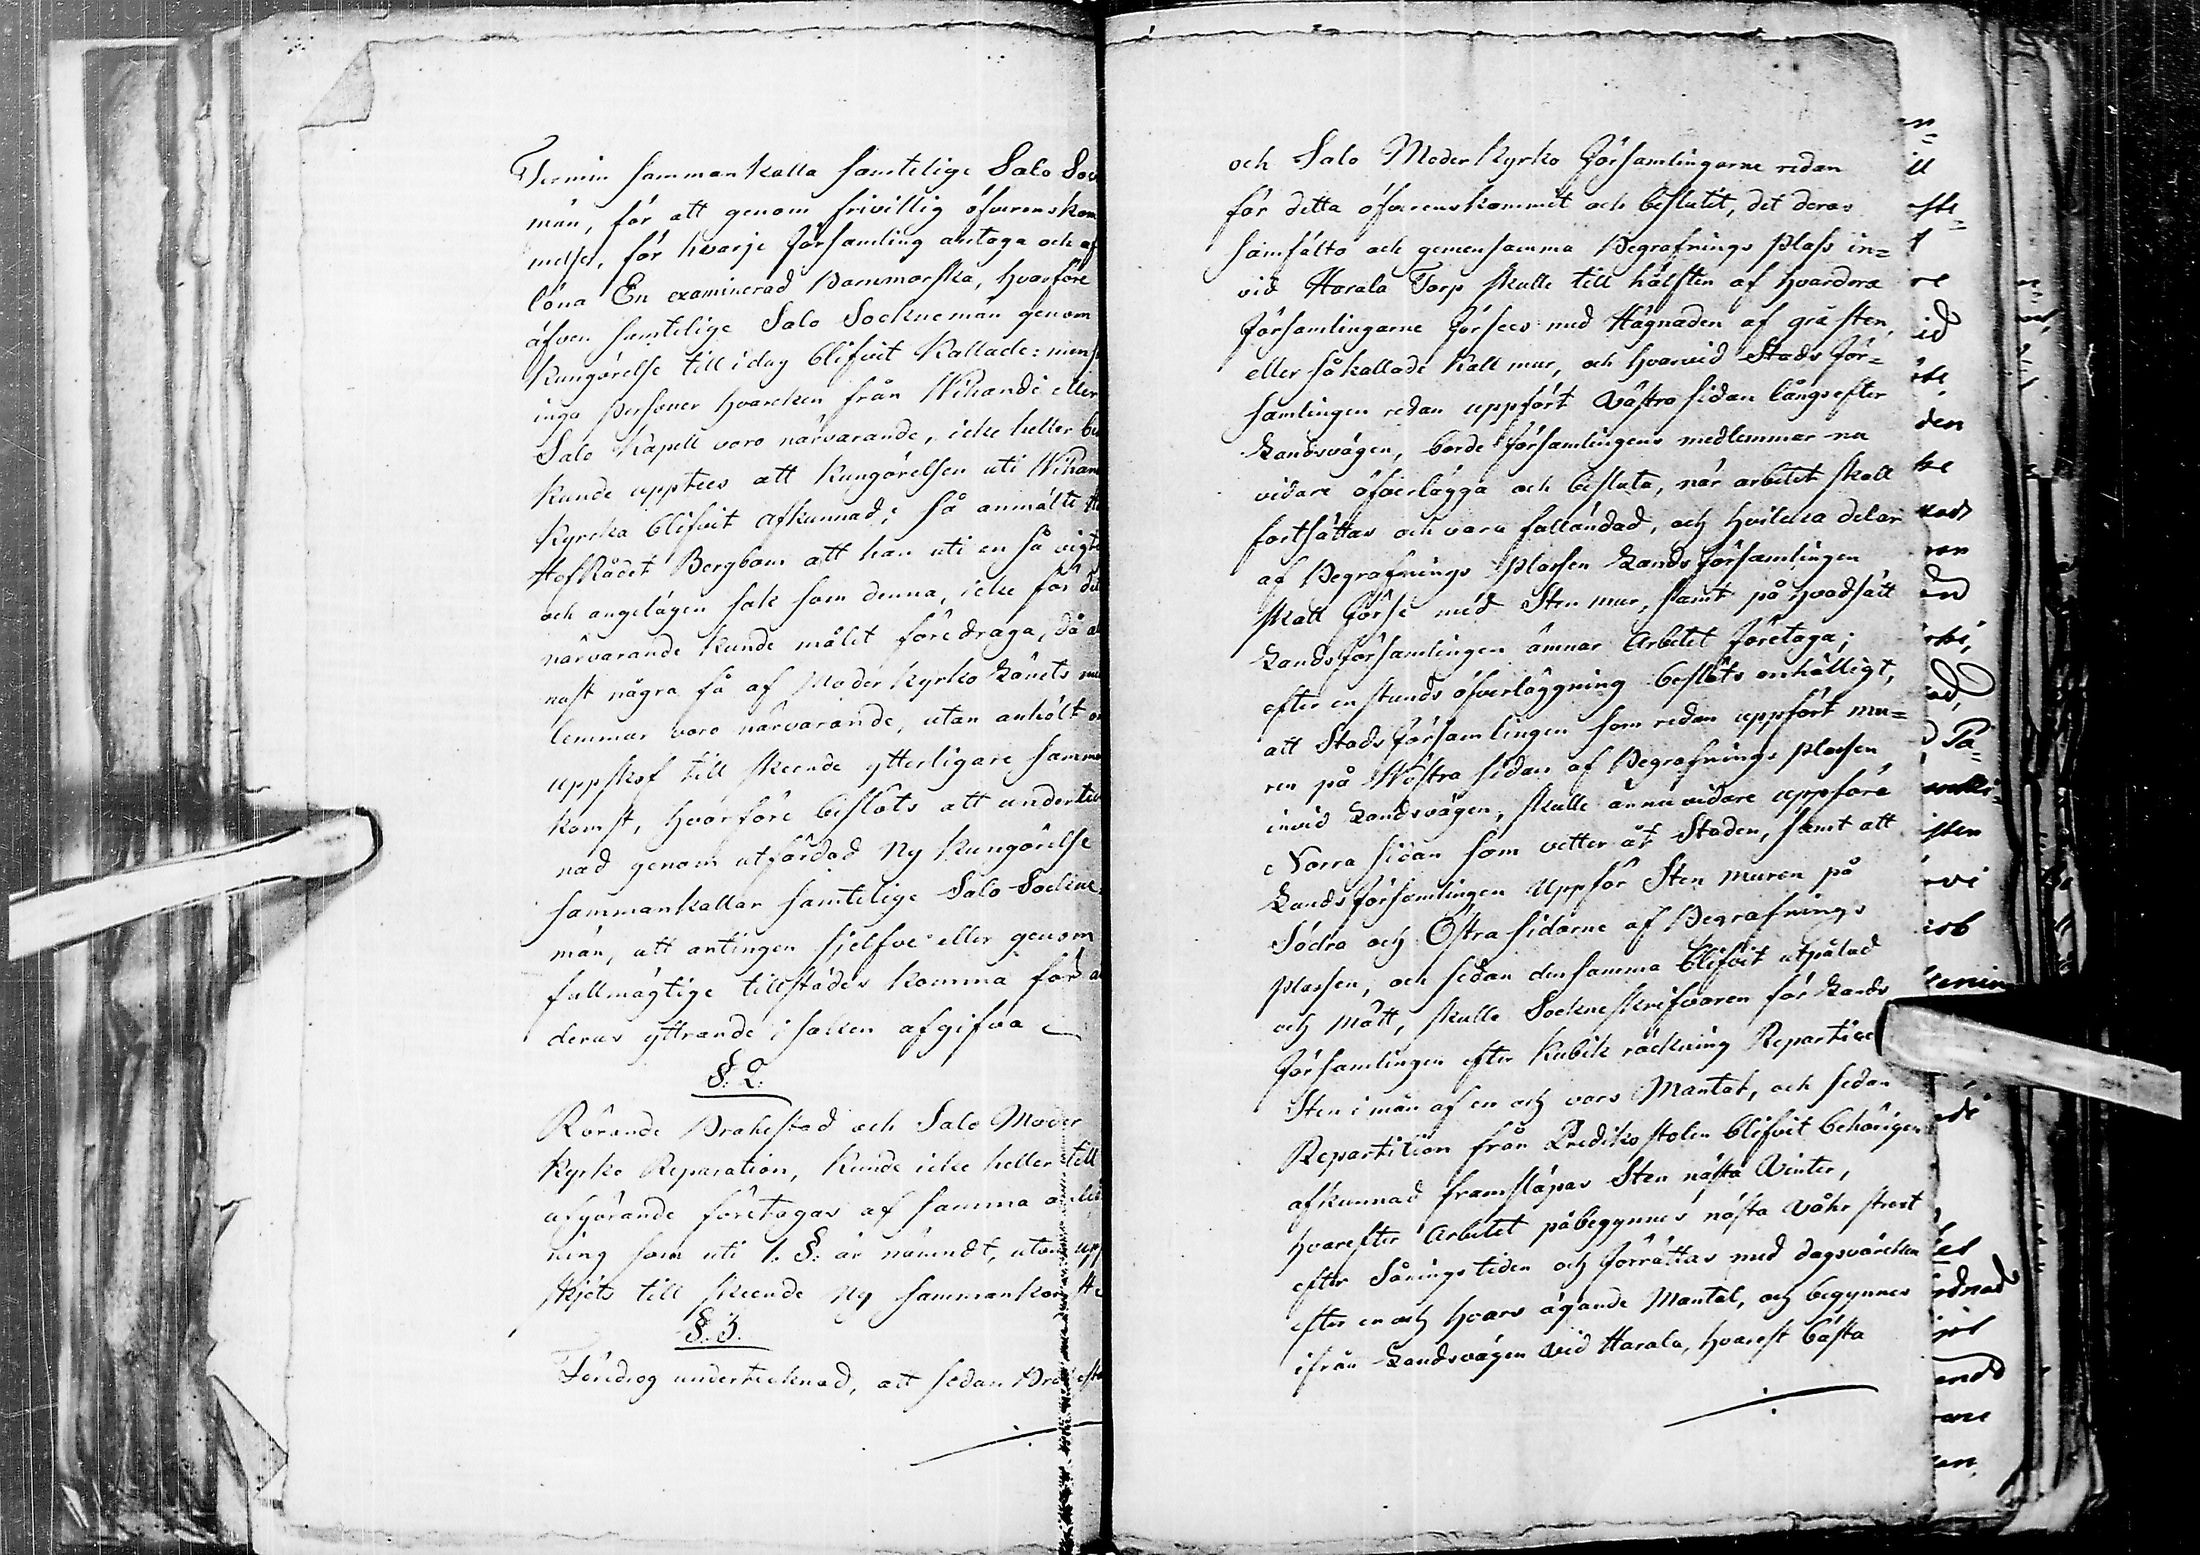 Termin sammankalla samtelige Salo Sock
män, för att genom frivillig öfverenskom
melse, för hvarje Församling antaga och af
löna En examinerad Barnmorska, hvarföre
äfven samtelige Salo Sockne män genom
Kungörelse till i dag blifvit Kallade: men
inga personer hvarcken från Wihandi eller
Salo Kapell voro närvarande, icke heller be
kunde upptees att Kungörelsen uti Wihan
Kyrcka blifvit afkunnad; så anmälte
HofRådet Bergbom att han uti en så vigt
och angelägen sak som denna, icke för de
närvarande kunde målet föredraga, då
nast några få af Moder Kyrko Länets
lemmar voro närvarande, utan anhölt
uppskof till skeende ytterligare samman
komst, hvarföre beslöts att underteck
nad genom utfärdad Ny kungörelse
sammankallar samtelige Salo Sockne
män, att antingen sjelfve eller genom
fullmägtige tillstädes komma för
deras yttrande i saken afgifva
§. 2.
Rörande Brahestad och Salo Moder
Kyrko Reparation, kunde icke heller till
afgörande företagas af samma anled
ning som uti 1. §. är nämndt, utan upp
skjöts till skeende Ny sammankomst
§. 3.
Föredrog undertecknad, att sedan Brahesta
och Salo Moder Kyrko Församlingarne redan
för detta öfverenskommit och beslutit, det deras
samfälta och gemensamma Begrafnings Plass in=
vid Harala Torp skulle till hälften af hvardera
Församlingarne Förses med Hägnaden af gråsten,
eller så kallade Kall mur, och hvarvid Stads För=
samlingen redan uppfört Västra sidan långsefter
Landsvägen, borde Församlingens medlemmar nu
vidare öfverlägga och besluta, när arbetet skall
fortsättas och vara fulländad, och hvilcka delar
af Begrafnings Plassen Lands församlingen
skall Förse med Sten mur, samt på hvad sätt
Landsförsamlingen ämnar Arbetet Företaga;
efter en stunds öfverläggning beslöts enhälligt,
att Stads Församlingen som redan uppfört mu=
ren på Wästra sidan af Begrafnings plassen
invid Landsvägen, skulle ännu vidare uppföra
Norra sidan som vetter åt Staden, samt att
Landsförsamlingen Uppför Sten muren på
Södra och Östra sidorne af Begrafnings
plassen, och sedan densamma blifvit utpålad
och mått, skulle Sockneskrifvaren för Lands
Församlingen efter Kubik räckning Repartice
Sten i mån af en och vars Mantal, och sedan
Repartition från Predikostolen blifvit behörigen
afkunnad framsläpas Sten nästa Vinter,
hvarefter Arbetet påbegynnes nästa Våhr strext
efter Såningstiden och Förrättas med dagsvärcken
efter en och hvars ägande Mantal, och begynnes
ifrån Landsvägen vid Harala, hvarest bästa